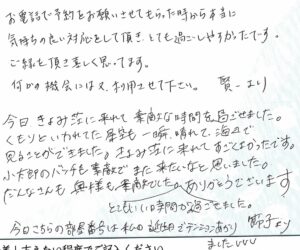 お電話で予約をお願いさせてもらった時から本当に
気持ちの良い対応をして頂き、とても過ごしやすかったでーす。
ご縁を頂き楽しく思ってます。
何かの機会には又、利用させて下さい。 賢一より
今日きよみ荘に来れて素敵な時間を過ごせました。
くもりといわれてた星空も一瞬、晴れて、海で
見ることができました。きよみ荘に来れてすごくよかったです。
小太郎のバッチも素敵でまた来たいなと思いました。
だんなさんも奥様も素敵でした。ありがとうございます
とてもいい時間が過ごせました。
今日こちらの部屋番号は私の誕生日でテンションあがり 節子より
ましたvvv